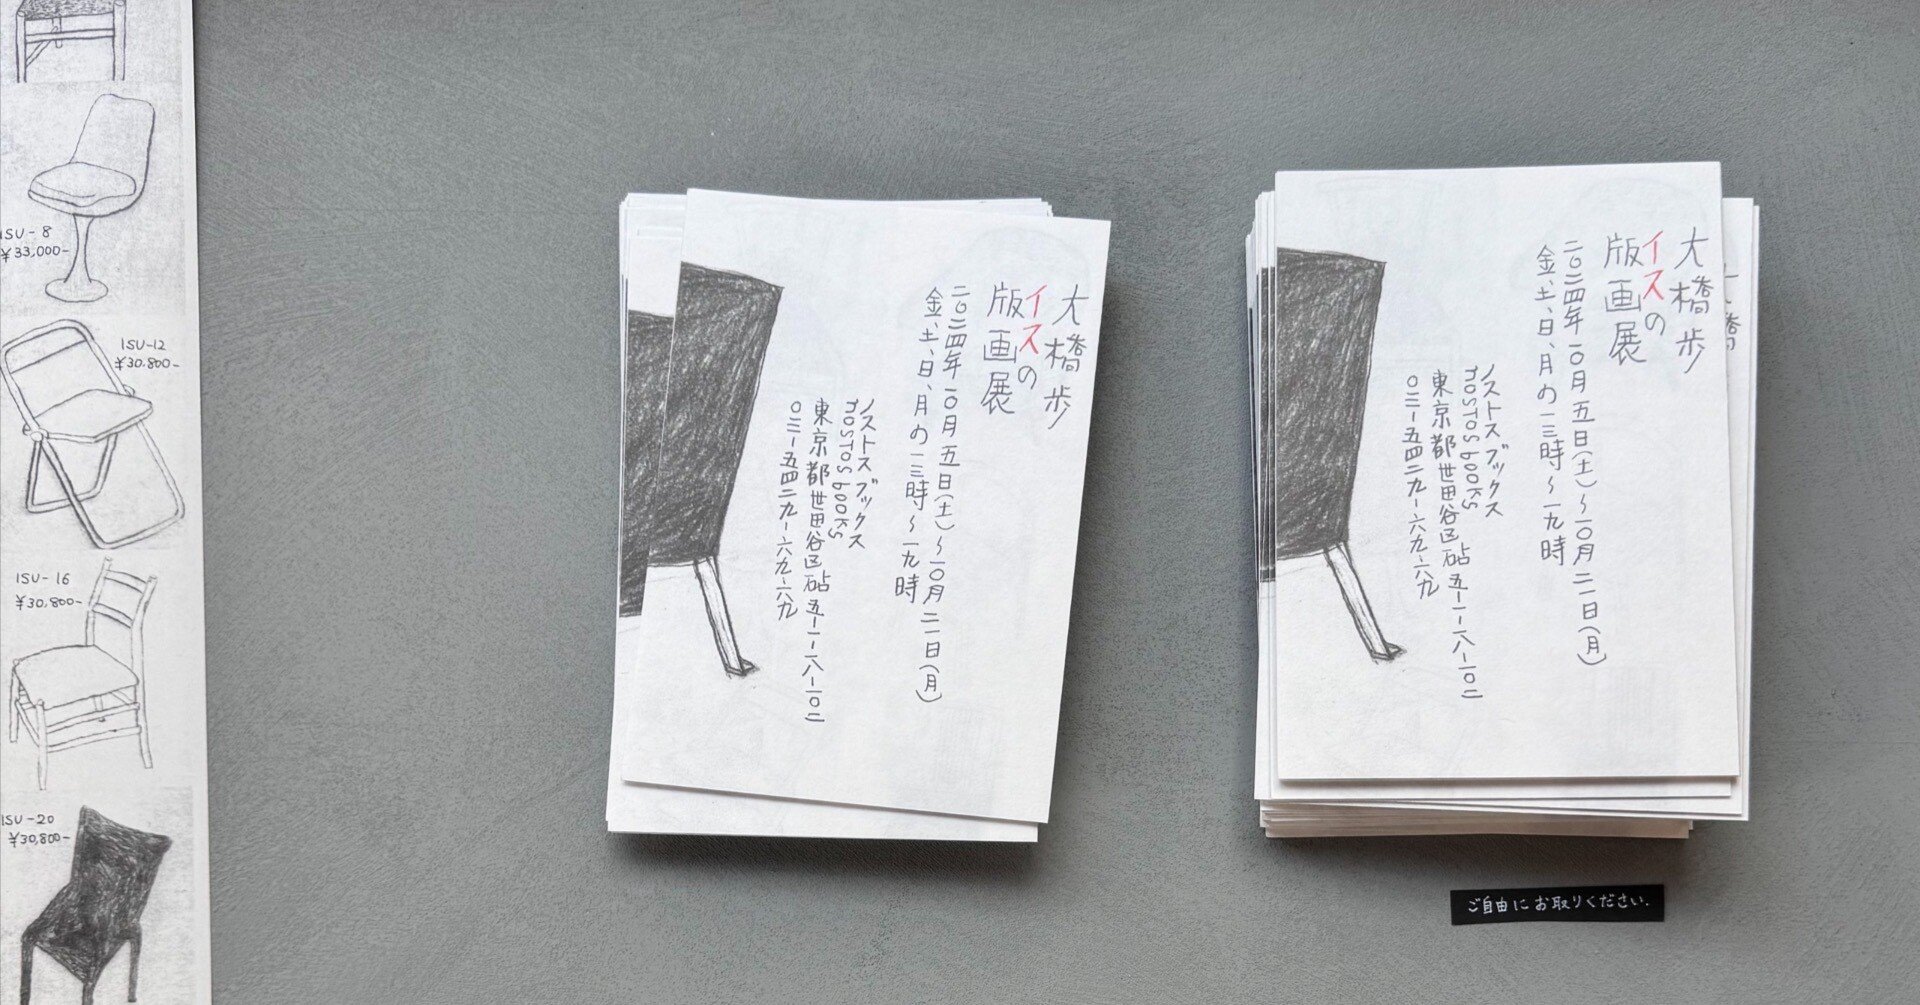 ISU-8
¥33,000-
ISU-12
¥30,800-
ISU-16
¥30,800-
ISU-20
¥30,800-
大橋歩
イスの
版画展
二〇二四年一〇月五日(土)〜一〇月二一日(月)
金、土、日、月の一三時〜一九時
ノストスブックス
nostos books
東京都世田谷区砧五-一-一八-一〇二
〇三-五四二九-六九六九
大橋歩
イスの
版画展
二〇二四年一〇月五日(土)〜一〇月二一日(月)
金、土、日、月の一三時〜一九時
ノストスブックス
nostos books
東京都世田谷区砧五-一-一八-一〇二
〇三-五四二九-六九六九
ご自由にお取りください.